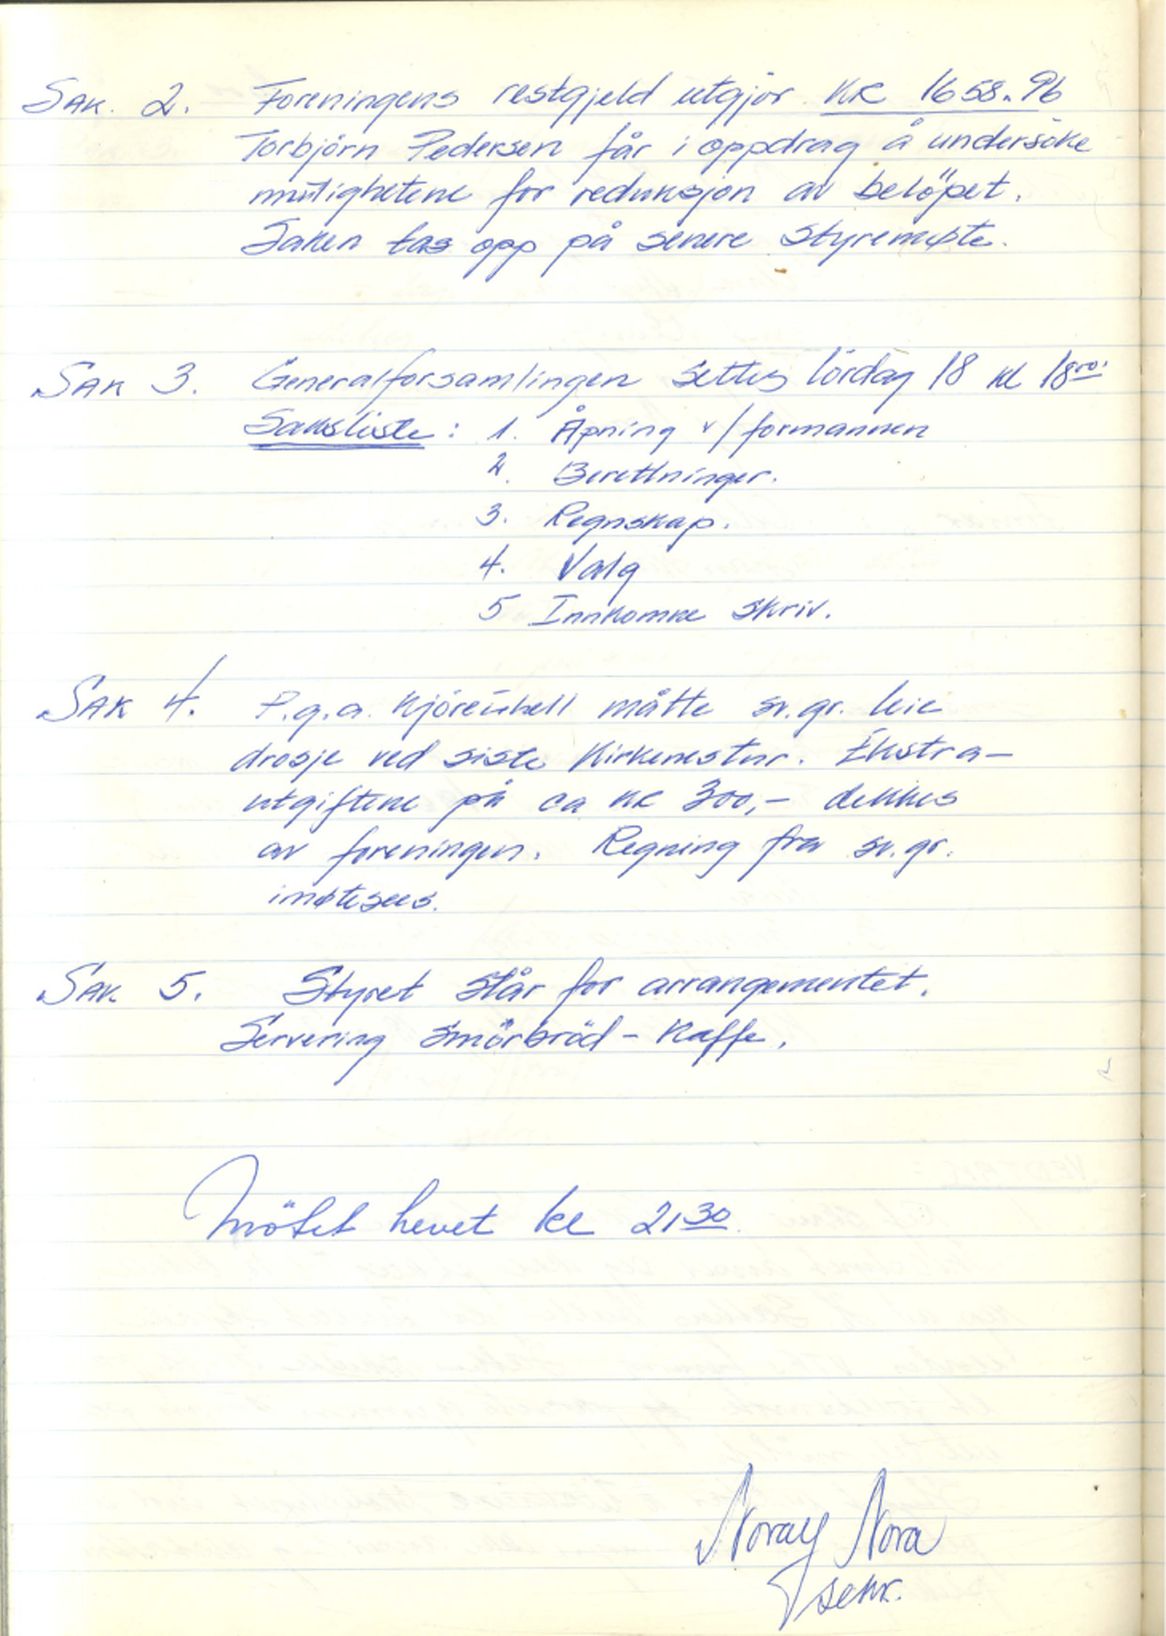 SAK. 2. Foreningens restgjeld utgjör KR 1658.96
Torbjörn Pedersen får i oppdrag å undersöke
mulighetene for reduksjon av belöpet.
Saken tas opp på senere styremøte.
SAK 3. Generalforsamlingen settes lördag 18 kl 18⁰⁰.
Saksliste: 1. Åpning v/formannen
2. Berettninger.
3. Regnskap.
4. Valg
5 Innkomne skriv.
SAK 4. P.g.a. kjöreuhell måtte sv.gr. leie
drosje ved siste Kirkenestur. Ekstra-
utgiftene på ca kr 300,- dekkes
av foreningen. Regning fra sv.gr.
imøtesees.
SAK. 5. Styret står for arrangementet.
Servering smörbröd - Kaffe.
Mötet hevet kl 21³⁰.
Nora
sekr.